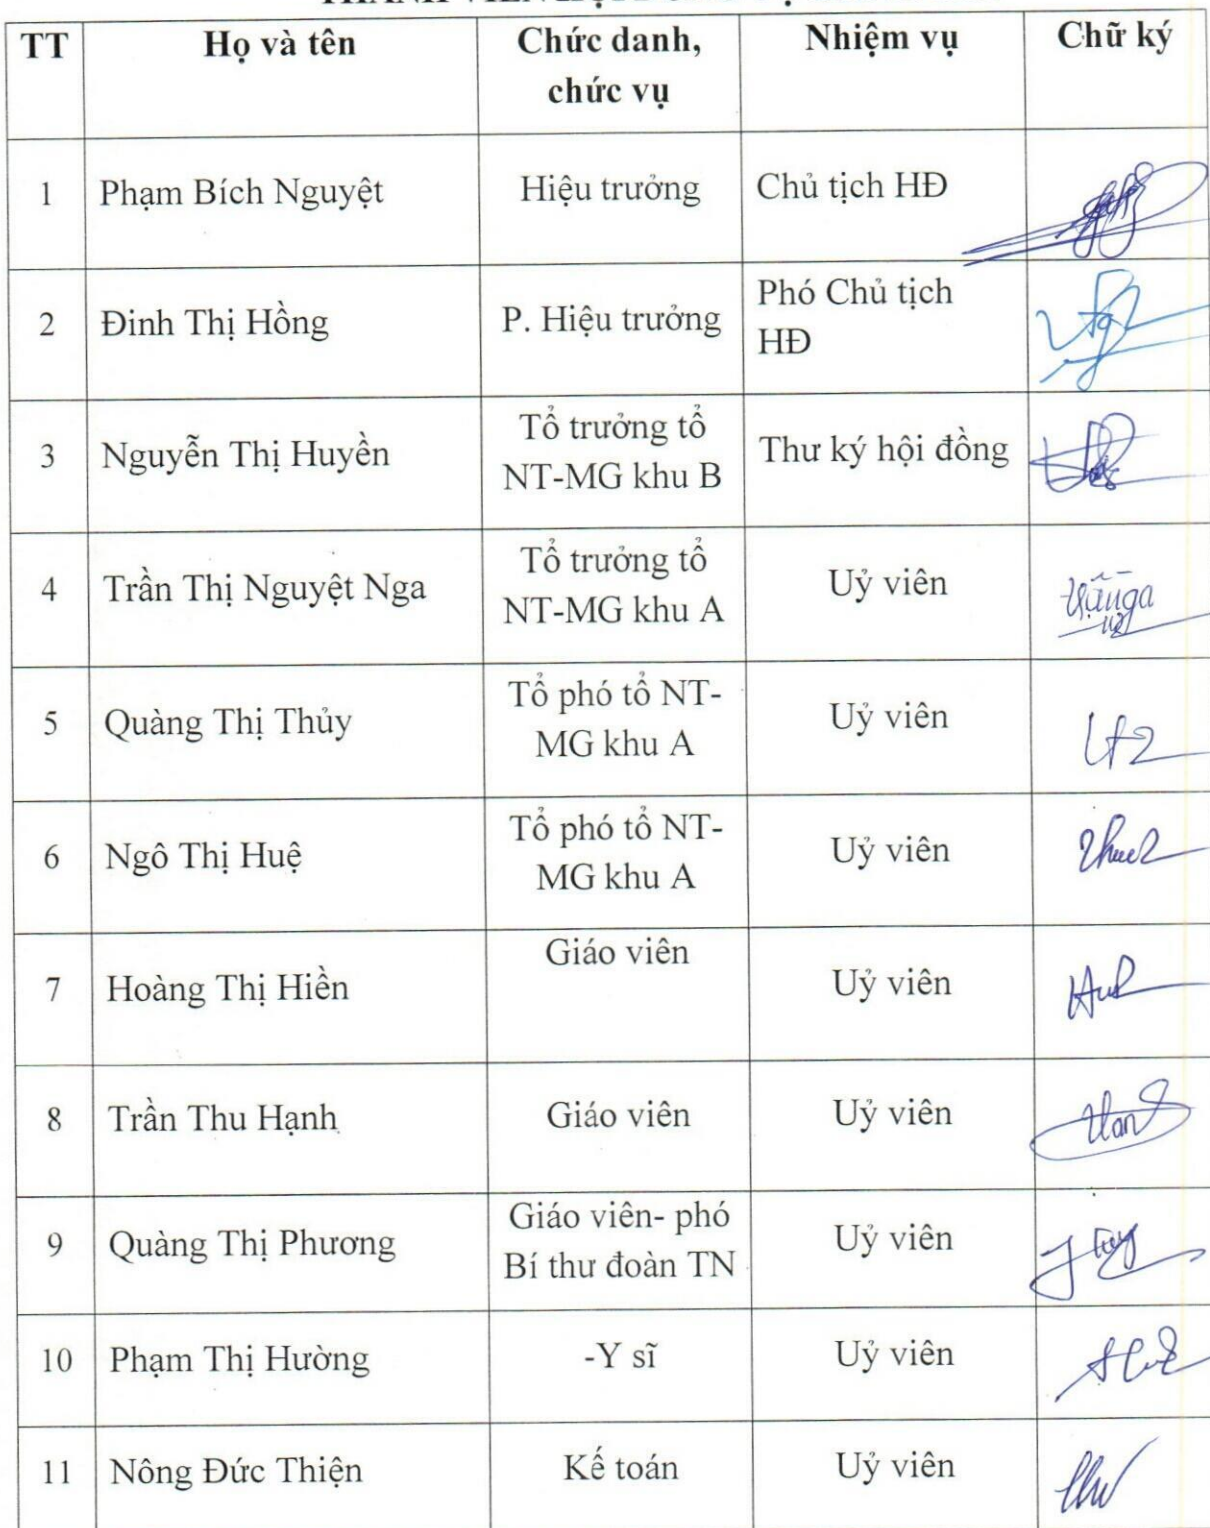 TT Họ và tên Chức danh, Nhiệm vụ Chữ ký
chức vụ
1 Phạm Bích Nguyệt Hiệu trưởng Chủ tịch HĐ
2 Đinh Thị Hồng P. Hiệu trưởng Phó Chủ tịch
HĐ
3 Nguyễn Thị Huyền Tổ trưởng tổ Thư ký hội đồng
NT-MG khu B
4 Trần Thị Nguyệt Nga Tổ trưởng tổ Uỷ viên
NT-MG khu A
5 Quàng Thị Thủy Tổ phó tổ NT- Uỷ viên
MG khu A
6 Ngô Thị Huệ Tổ phó tổ NT- Uỷ viên
MG khu A
7 Hoàng Thị Hiền Giáo viên Uỷ viên
8 Trần Thu Hạnh Giáo viên Uỷ viên
9 Quàng Thị Phương Giáo viên- phó Uỷ viên
Bí thư đoàn TN
10 Phạm Thị Hường -Y sĩ Uỷ viên
11 Nông Đức Thiện Kế toán Uỷ viên